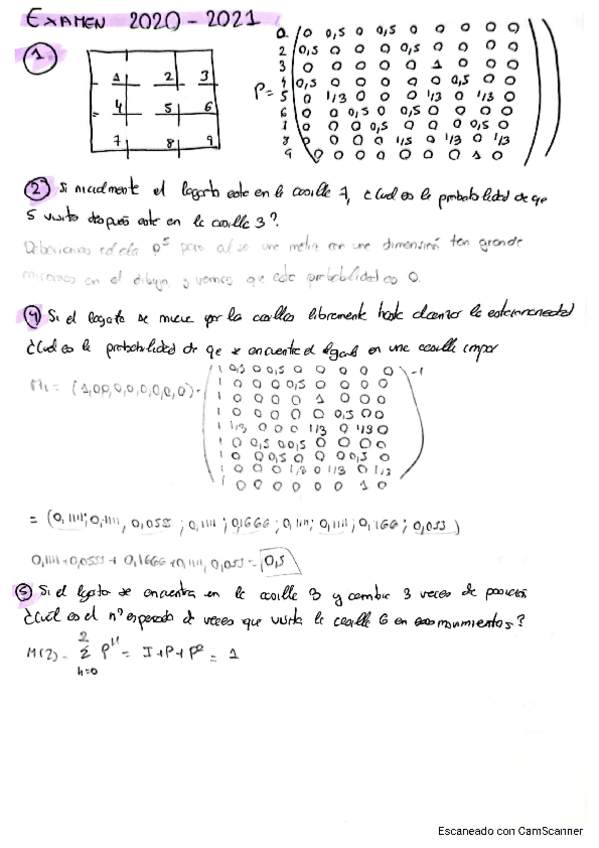 EXAMEN 2020-2021
1
1 2 3
4 5 6
7 8 9
P=
0 0,5 0 0,5 0 0 0 0 0
2 0,5 0 0 0 0,5 0 0 0 0
3 0 0 0 0 0 1 0 0 0
4 0,5 0 0 0 0 0 0,5 0 0
5 0 1/3 0 0 0 1/3 0 1/3 0
6 0 0 0,5 0 0,5 0 0 0 0
0 0 0 0,5 0 0 0 0,5 0
8 0 0 0 1/5 0 1/3 0 1/3
9 0 0 0 0 0 0 0 1 0
2 Si inicialmente el lagarto este en la casilla 7, ¿Cual es la probabilidad de que
5 visitas después este en la casilla 3?
P5 para al ser una matriz con una dimensión tan grande
miramos en el dibujo y vemos que esta probabilidad es 0.
4 Si el lagarto se mueve por las casillas libremente hasta alcanzar la
¿Cual es la probabilidad de que se encuentre el lagarto en una casilla impar
= (1,0,0,0,0,0,0,0)·
1 0,5 0 0,5 0 0 0 0 0
1 0 0 0 0,5 0 0 0 0
1 0 0 0 0 1 0 0 0
1 0 0 0 0 0 0,5 0 0
1 1/3 0 0 0 1/3 0 1/3 0
1 0 0,5 0 0,5 0 0 0 0
1 0 0 0,5 0 0 0 0,5 0
1 0 0 0 1/3 0 1/3 0 1/3
1 0 0 0 0 0 0 1 0
-1
= (0,1111; 0,1111, 0,055 ; 0,1111 ; 0,1666 ; 0,1111; 0,1111; 0,166 ; 0,055)
0,1111+0,0555+ 0,1666+0,111, 0,055= 0,5
5 Si el lagarto se encuentra en la casilla 3 y cambia 3 veces de posición
¿Cuál es el nº esperado de veces que visita la casilla 6 en esos movimientos?
M(2)= 2 Σ n=0 Pn = I+P+P2 = 1
Escaneado con CamScanner